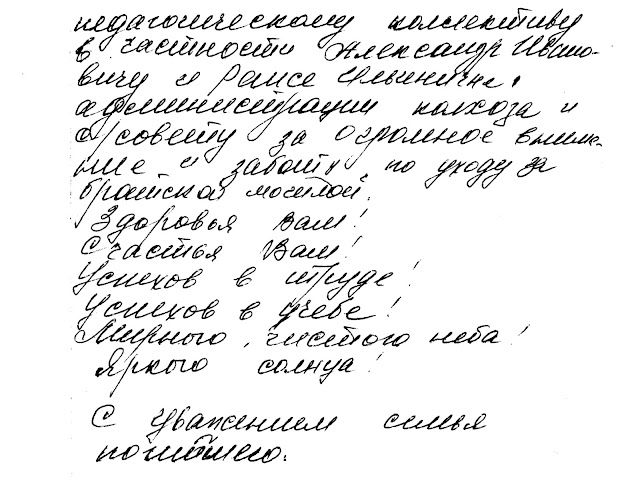 педагогическому коллективу
в частности Александр Ивано-
вичу и Раисе Ильиничне,
администрации колхоза и
с/совету за огромное внима-
ние и заботу по уходу за
братской могилой.
Здоровья вам!
Счастья Вам!
Успехов в труде!
Успехов в учебе!
Мирного, чистого неба!
Яркого солнца!
С уважением семья
погибшего.